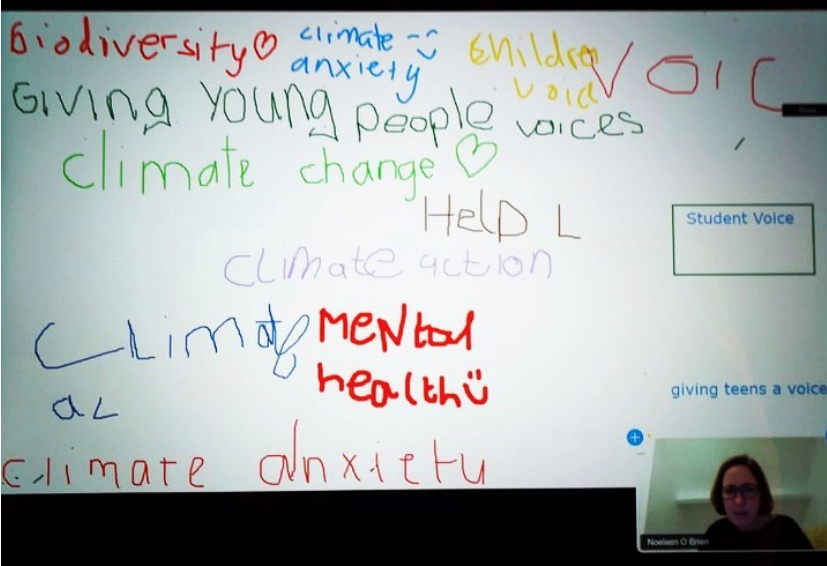 Biodiversity♡
climate
anxiety
Children
voice
VOIC
GIVING YOUNG People voices
climate change ♡
Help L
Student Voice
CLIMATE action
CLimate
MeNtal
healthü
ac
giving teens a voice
climate anxiety
Noeleen O Brien